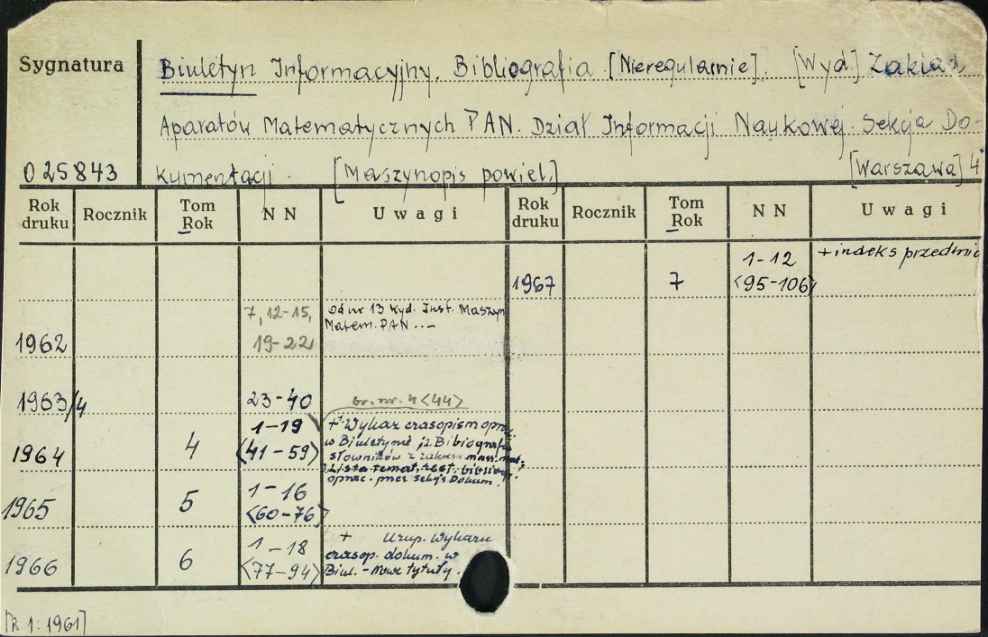 Sygnatura
Biuletyn Informacyjny. Bibliografia [Nieregularnie]. [Wyd.] Zakład
Aparatów Matematycznych PAN. Dział Informacji Naukowej. Sekcja Do-
025843 kumentacji. [Maszynopis powiel.] [Warszawa] 4°
Rok druku Rocznik Tom Rok NN Uwagi Rok druku Rocznik Tom Rok NN Uwagi
1967 7 1-12 <95-106> + indeks przedmio
1962 7, 12-15, 19-22 Od nr 13 Wyd. Inst. Maszyn
Matem. PAN
1963/4 23-40 br. nr. 4 <44>
1964 4 1-19 <41-59> + Wykaz czasopism oprac.
w Biuletynie
słowników z zakresu masz. mat.
Lista temat. zest. bibliogr.
oprac. przez Sekcję Dokum.
1965 5 1-16 <60-76>
1966 6 1-18 <77-94> + Uzup. Wykazu
czasop. dokum. w
Biul. - nowe tytuły.
[R. 1: 1961]